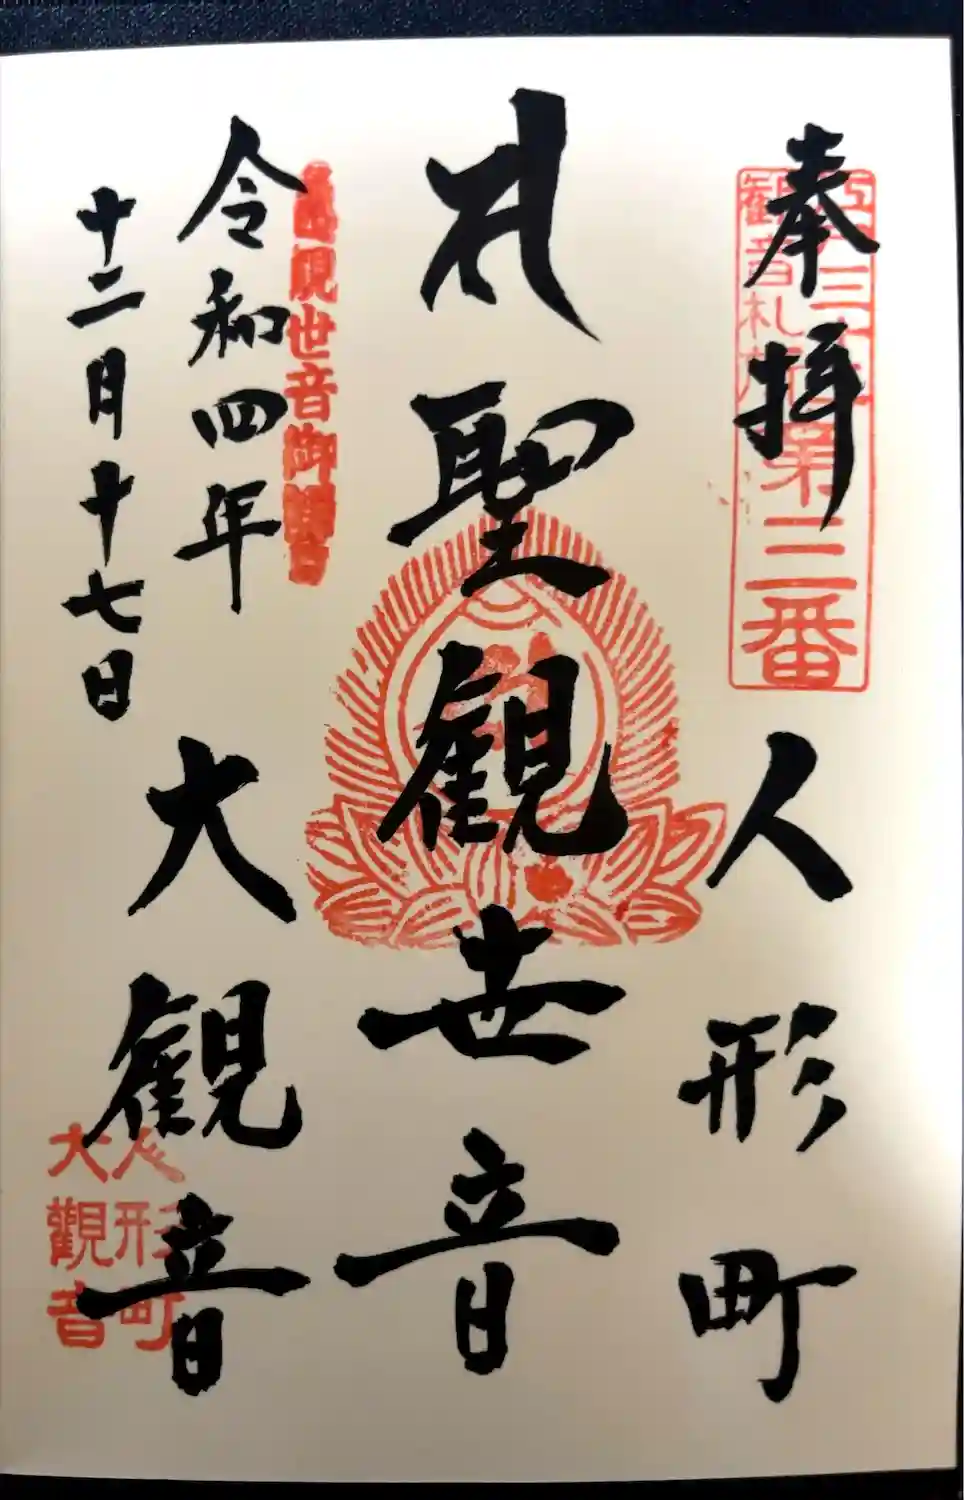 奉拝
人形町
聖観世音
令和四年
十二月十七日
大観音
観音札所
第三番
世音御
人形町
大観音